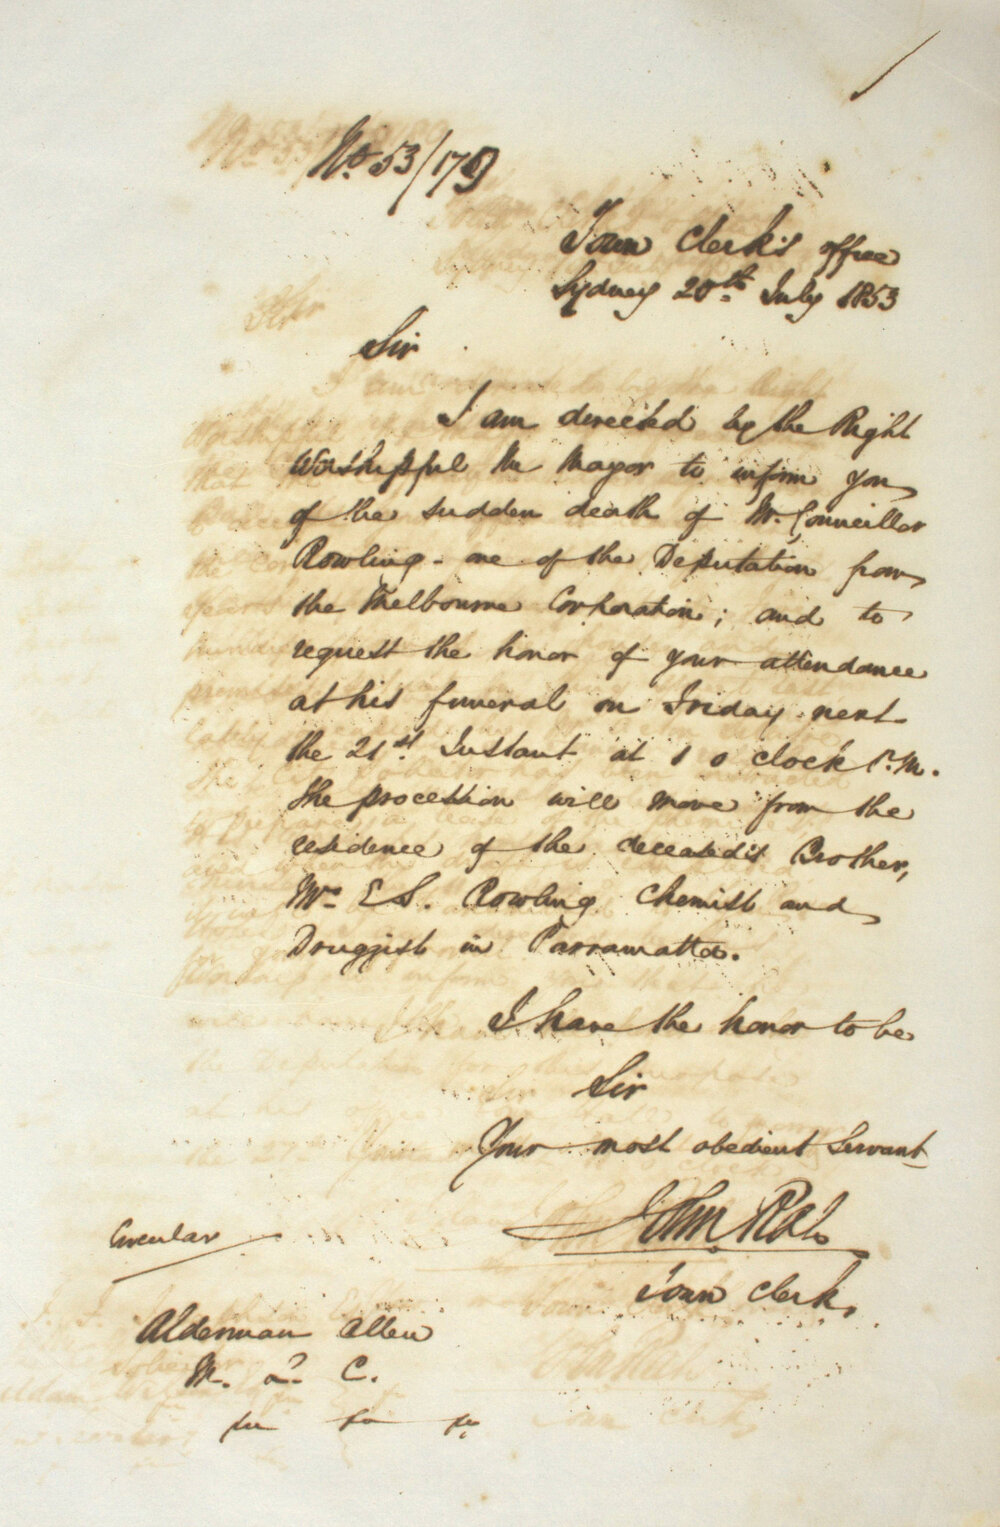 No. 53/179
Town Clerk's office
Sydney 20th July 1853
Sir
I am directed by the Right
Worshipful the Mayor to inform you
of the sudden death of Mr. Councillor
Rowling - one of the Deputation from
the Melbourne Corporation; and to
request the honor of your attendance
at his funeral on Friday next
the 21st Instant at 1 o clock P.M.
The procession will move from the
residence of the deceased's Brother,
Mr. E S. Rowling Chemist and
Druggist in Parramatta.
I have the honor to be
Sir
Your most obedient Servant
John Rae
Town Clerk
Circular
Alderman Allen
M. L. C.